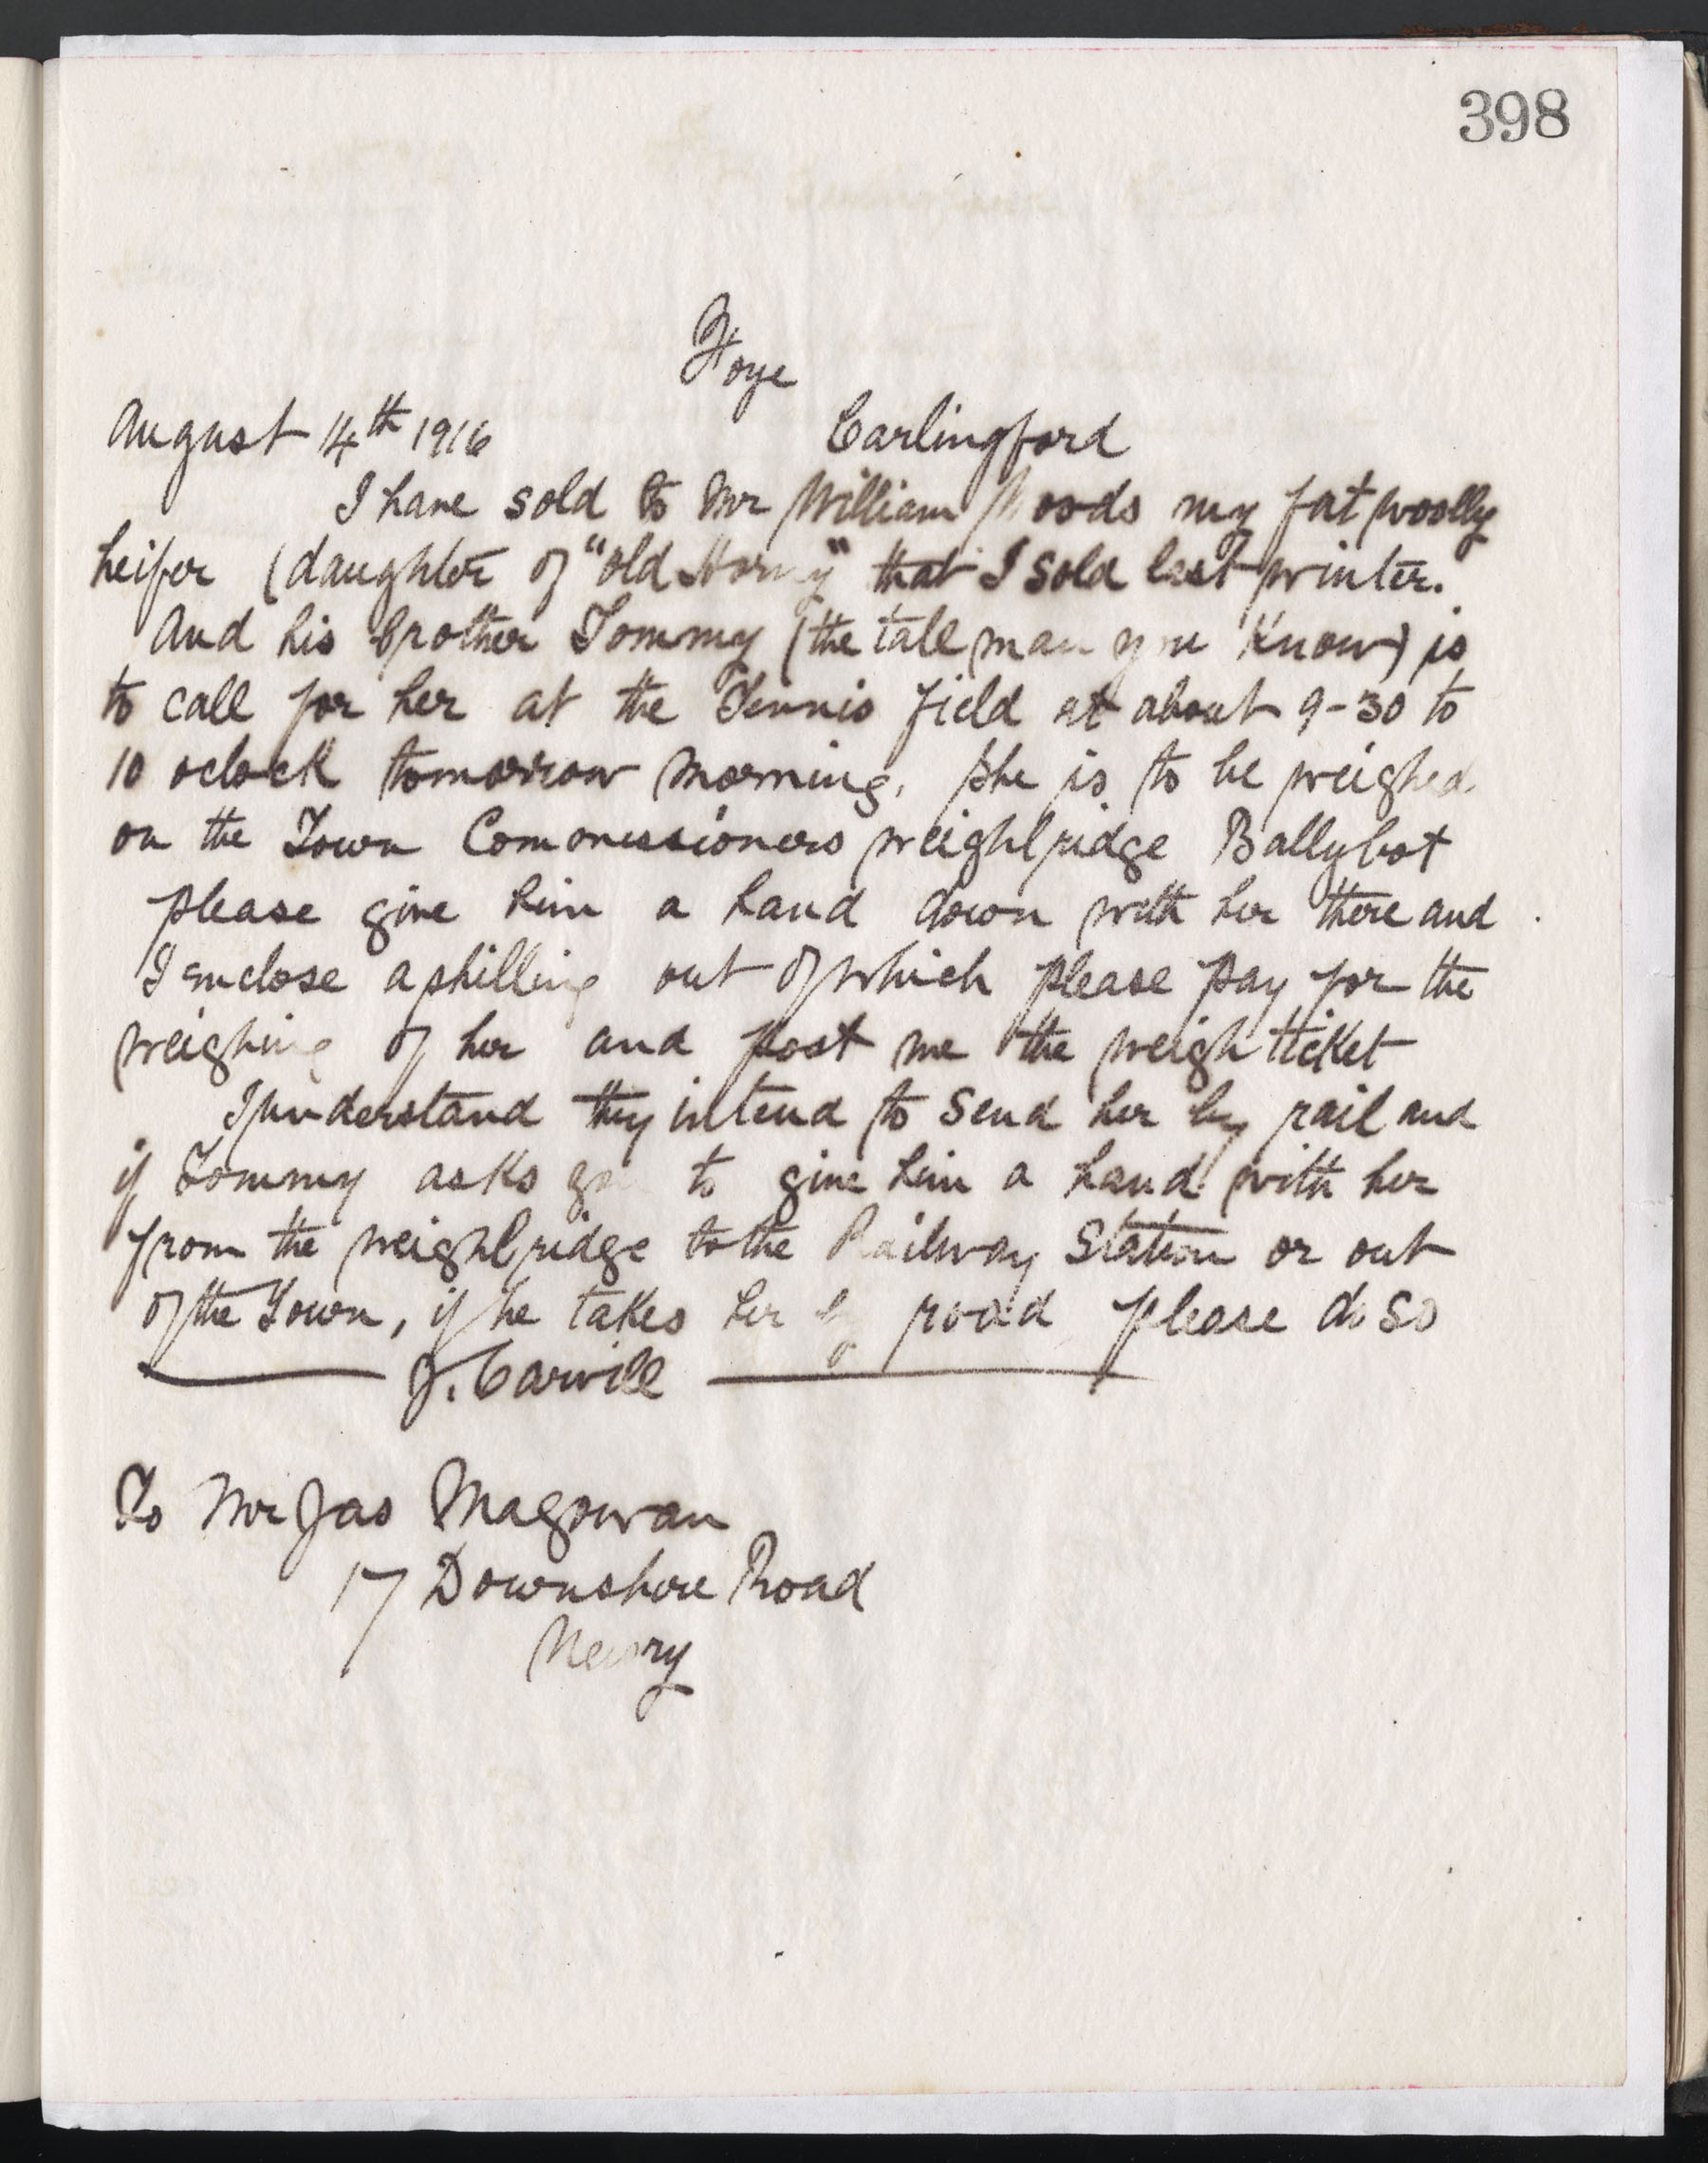 398
Foye
August 14th 1916 Carlingford
I have sold to Mr William Woods my fat woolly
heifer (daughter of "old Horny" that I sold last winter.
And his brother Tommy (the tall man you know) is
to call for her at the Tennis field at about 9-30 to
10 oclock tomorrow morning. She is to be weighed
on the Town Commissioners weighbridge Ballybot
please give him a hand down with her there and
I enclose a shilling out of which please pay for the
weighing of her and post me the weigh ticket
I understand they intend to send her by rail and
if Tommy asks you to give him a hand with her
from the weighbridge to the Railway Station or out
of the Town, if he takes her by road please do so
J. Carvill
To Mr Jas Magowan
17 Downshire Road
Newry